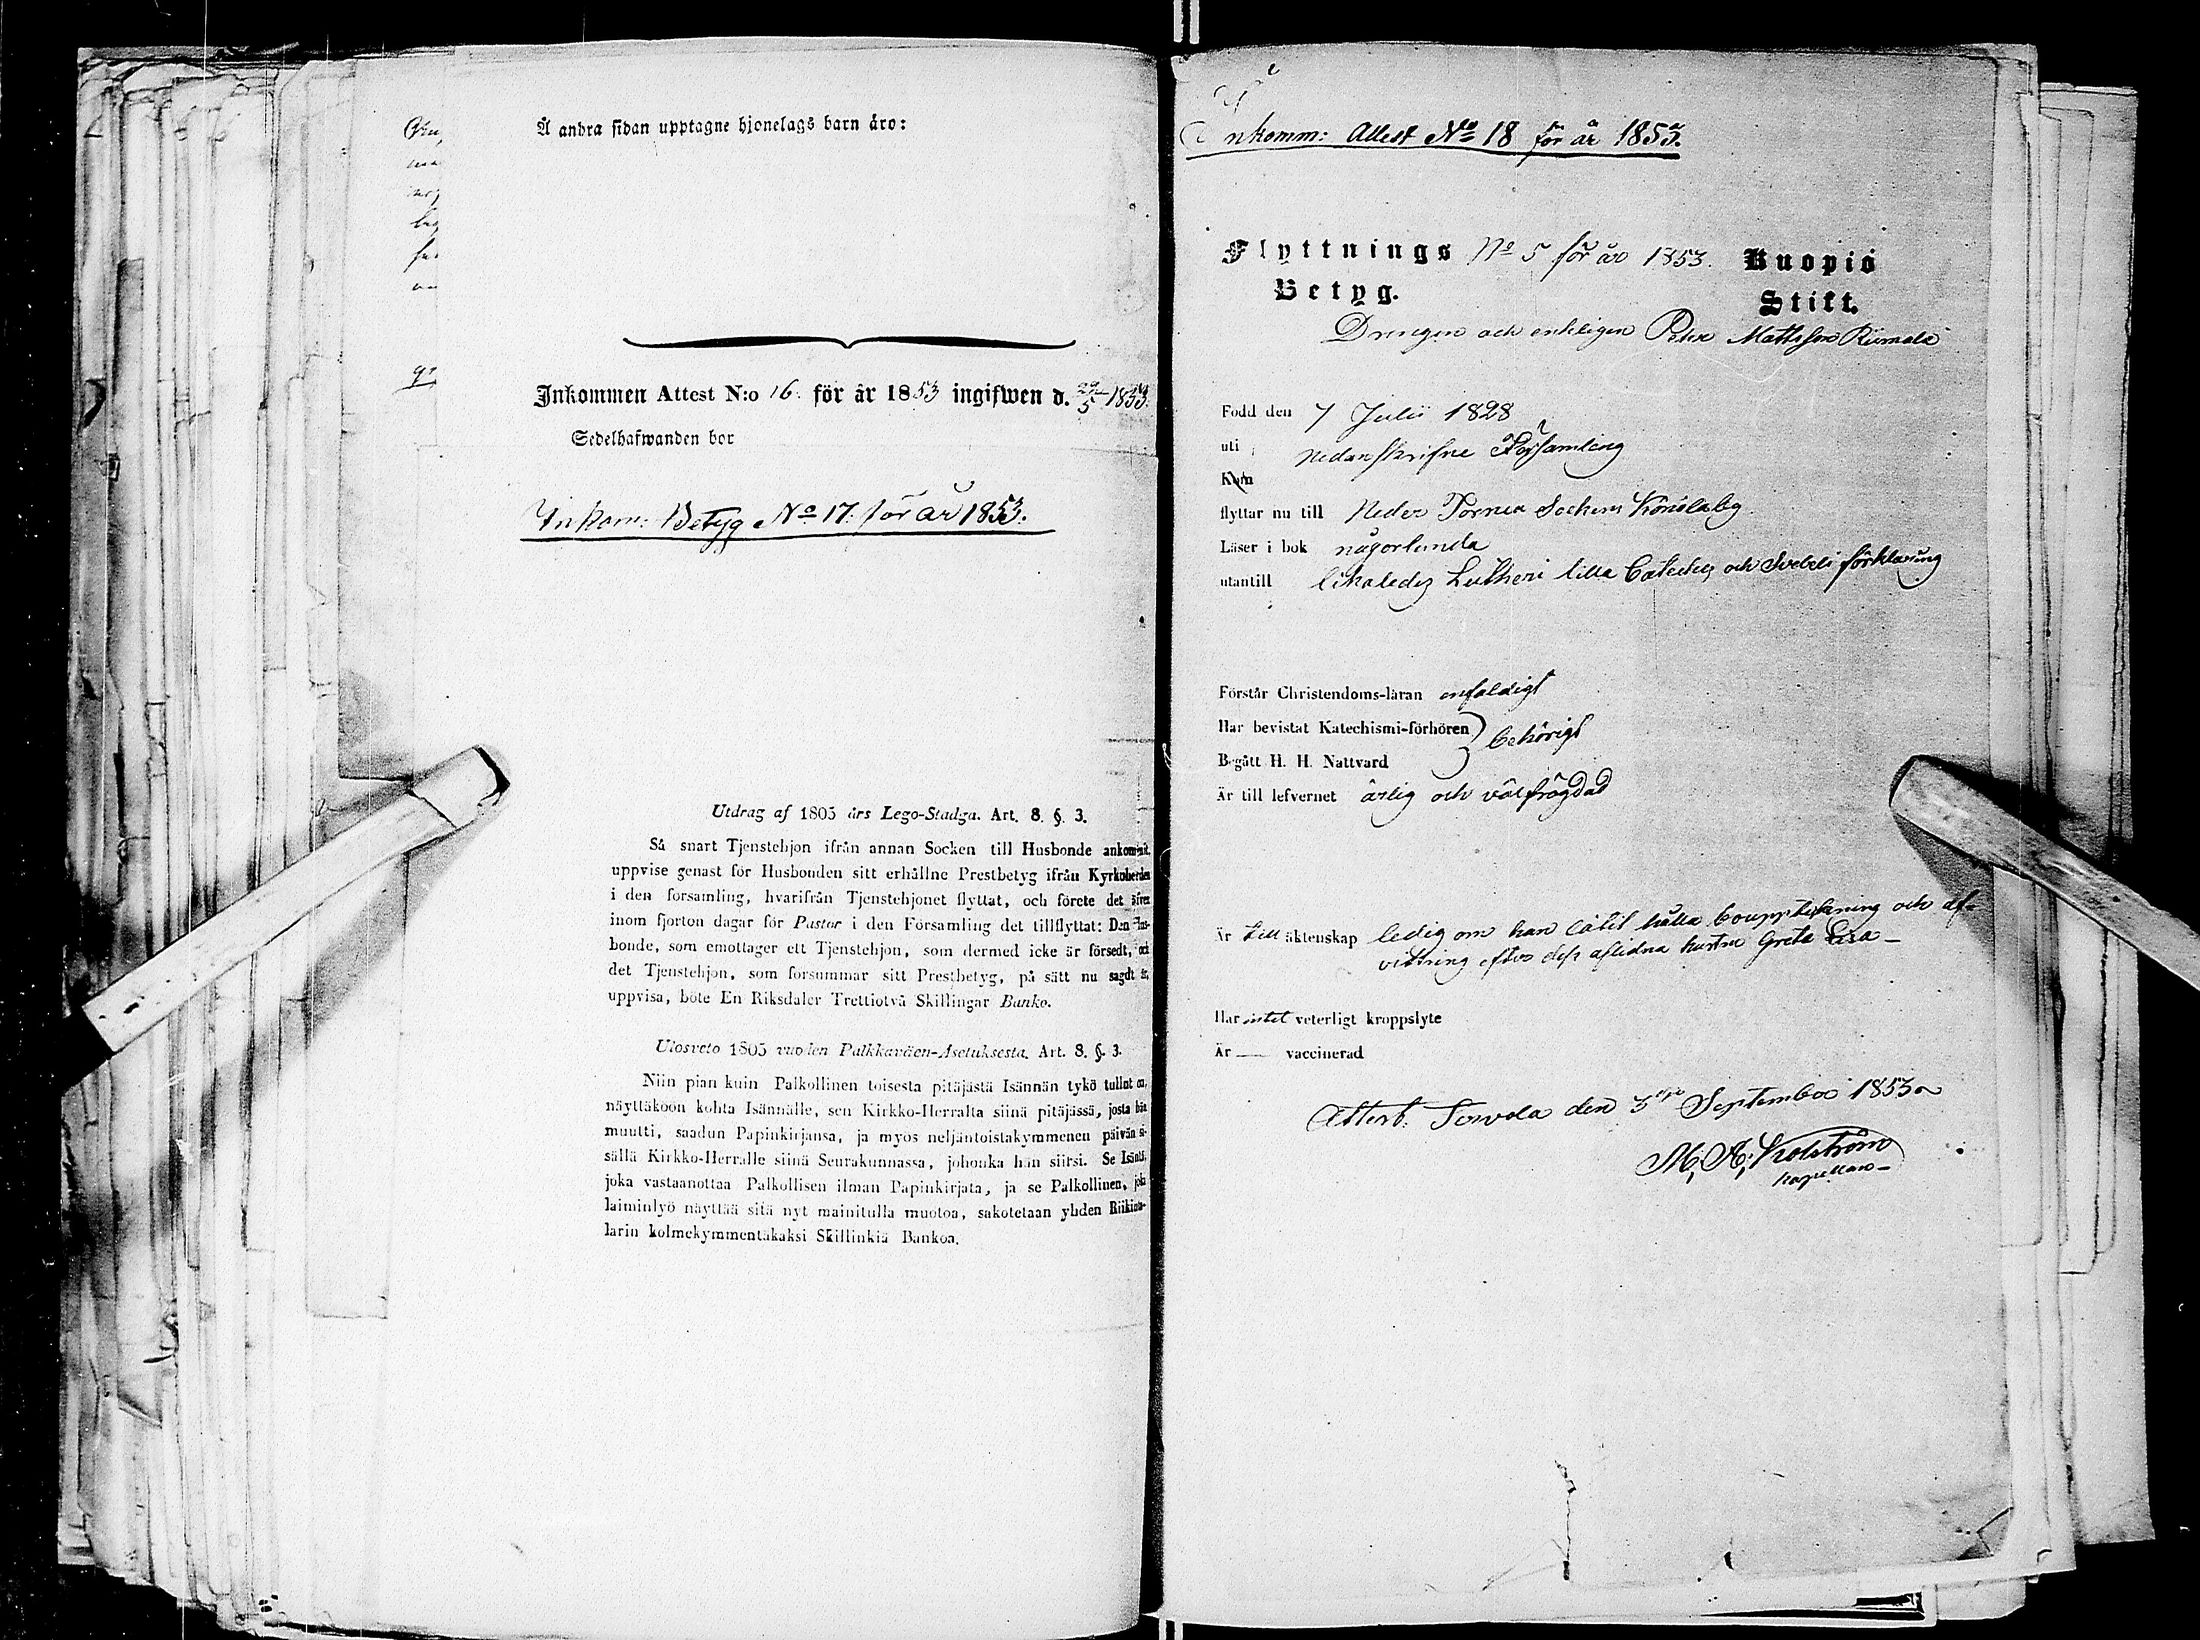 Å andra sidan upptagne hjonelags barn äro:
Inkommen Attest N:o 16. för år 1853 ingifwen d. 29/5 1853.
Sedelhafwanden bor
Inkom: Betyg No 17. för år 1853.
Utdrag af 1805 års Lego-Stadga. Art. 8. §. 3.
Så snart Tjenstehjon ifrån annan Socken till Husbonde ankommit,
uppvise genast för Husbonden sitt erhållne Prestbetyg ifrån Kyrkoherden
i den forsamling, hvarifrån Tjenstehjonet flyttat, och förete det äfven
inom fjorton dagar för Pastor i den Församling det tillflyttat: Den Hus-
bonde, som emottager ett Tjenstehjon, som dermed icke är försedt, och
det Tjenstehjon, som forsummar sitt Prestbetyg, på sätt nu sagdt är,
uppvisa, böte En Riksdaler Trettiotvå Skillingar Banko.
Ulosveto 1805 vuoden Palkkaväen-Asetuksesta. Art. 8. §. 3.
Niin pian kuin Palkollinen toisesta pitäjästä Isännän tykö tullut on,
näyttäköön kohta Isännälle, sen Kirkko-Herralta siinä pitäjässä, josta hän
muutti, saadun Papinkirjansa, ja myös neljäntoistakymmenen päivän si-
sällä Kirkko-Herralle siinä Seurakunnassa, johonka hän siirsi. Se Isäntä,
joka vastaanottaa Palkollisen ilman Papinkirjata, ja se Palkollinen, joka
laiminlyö näyttää sitä nyt mainitulla muotoa, sakotetaan yhden Riikinta-
larin kolmekymmentäkaksi Skillinkiä Bankoa.
Inkomm: Attest No 18 för år 1853.
Flyttnings No 5 för år 1853. Kuopio
Betyg. Stift.
Drengen och enklingen Peter Mattsson Rümälä
Fodd den 7 Julii 1828
uti nedanskrifne Församling
Kom
flyttar nu till Neder Torneå Sockens Könölä by
Läser i bok någorlunda
utantill likaledes Lutheri lilla Cateches och Svebeli förklaring
Förstår Christendoms-läran enfaldigt
Har bevistat Katechismi-förhören
behörigt
Begått H. H. Nattvard
Är till lefvernet ärlig och välfrägdad
Är till äktenskap ledig om han låtit hålla bouppteckning och af-
vittring efter dess aflidna hustru Greta Lisa
Har intet veterligt kroppslyte
Är — vaccinerad
Attest: Tervola den 3dje September 1853
kapellan